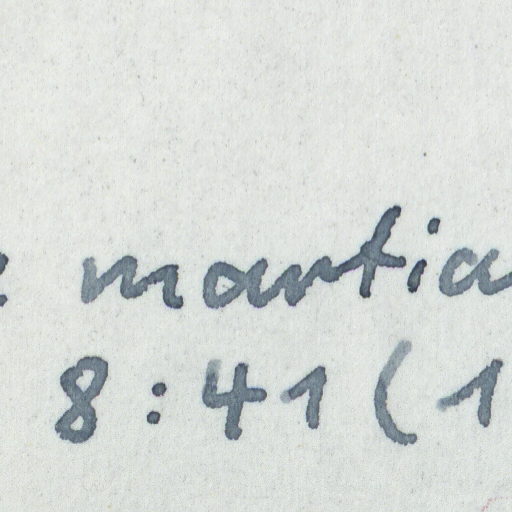 martia
8:41 (1